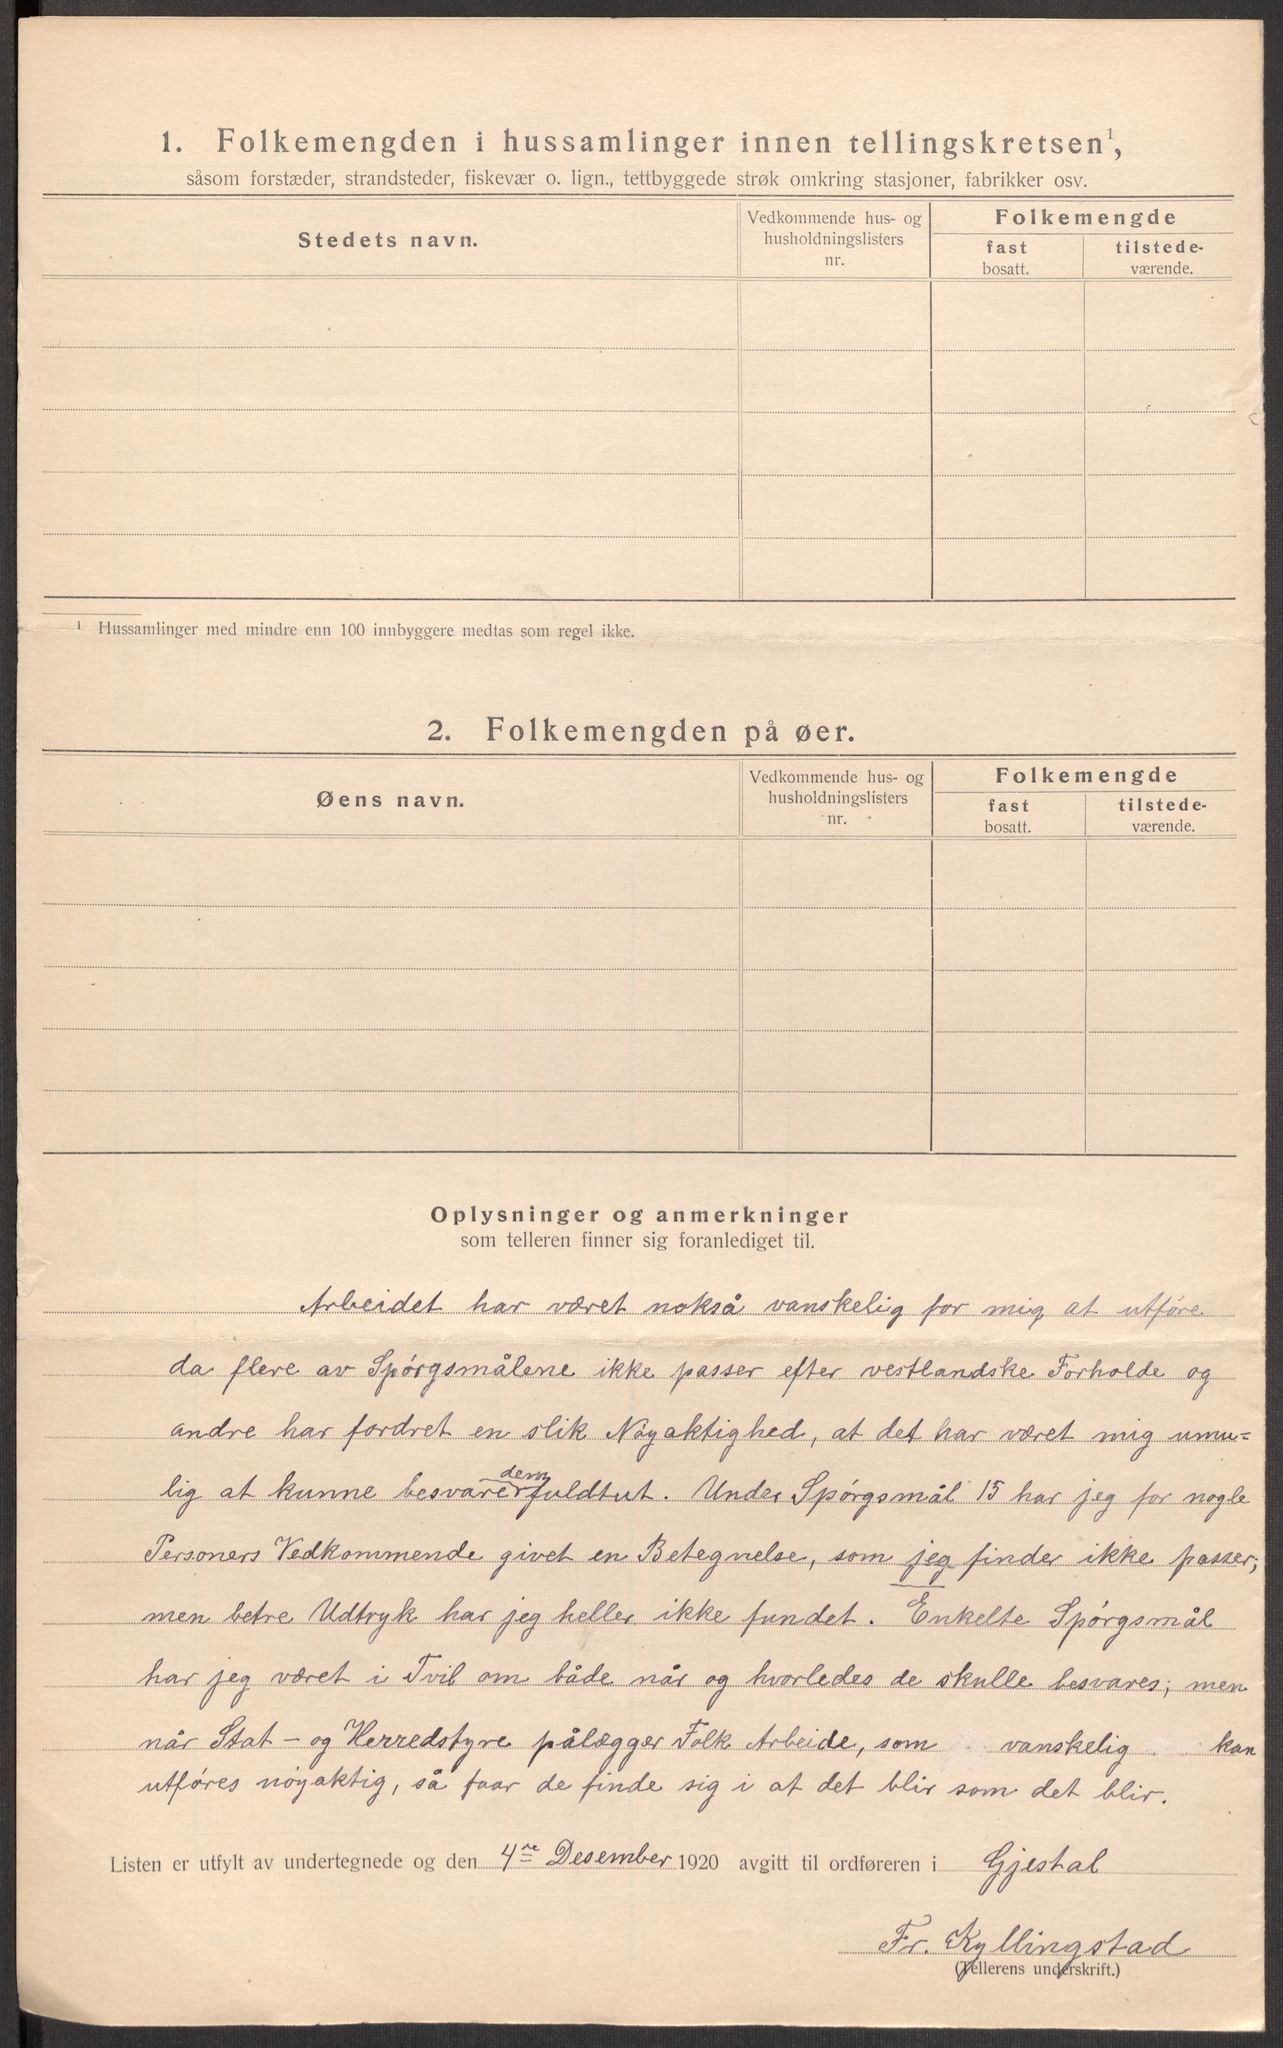 1. Folkemengden i hussamlinger innen tellingskretsen¹,
såsom forstæder, strandsteder, fiskevær o. lign., tettbyggede strøk omkring stasjoner, fabrikker osv.
Stedets navn.
Vedkommende hus- og
husholdningslisters
nr.
Folkemengde
fast
bosatt.
tilstede-
værende.
¹ Hussamlinger med mindre enn 100 innbyggere medtas som regel ikke.
2. Folkemengden på øer.
Øens navn.
Vedkommende hus- og
husholdningslisters
nr.
Folkemengde
fast
bosatt.
tilstede-
værende.
Oplysninger og anmerkninger
som telleren finner sig foranlediget til.
Arbeidet har været nokså vanskelig for mig at utføre
da flere av Spørgsmålene ikke passer efter vestlandske Forholde og
andre har fordret en slik Nøyaktighed, at det har været mig umu=
lig at kunne besvare dem fuldtut. Under Spørgsmål 15 har jeg for nogle
Personers Vedkommende givet en Betegnelse, som jeg finder ikke passer;
men betre Udtryk har jeg heller ikke fundet. Enkelte Spørgsmål
har jeg været i Tvil om både når og hvorledes de skulle besvares; men
når Stat- og Herredstyre pålægger Folk Arbeide, som vanskelig kan
utføres nøyaktig, så faar de finde sig i at det blir som det blir.
Listen er utfylt av undertegnede og den 4re Desember 1920 avgitt til ordføreren i Gjestal
Fr. Kyllingstad
(Tellerens underskrift.)